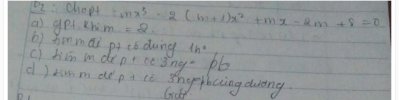 B2: Cho pt: mx³ - 2(m+1)x² + mx - 2m + 8 = 0
a) gpt khi m = 2.
b) tìm m để pt có đúng 1 no
c) tìm m để pt có 3 ng pb
d) tìm m để pt có 3 ng pb cùng dương.
Giải